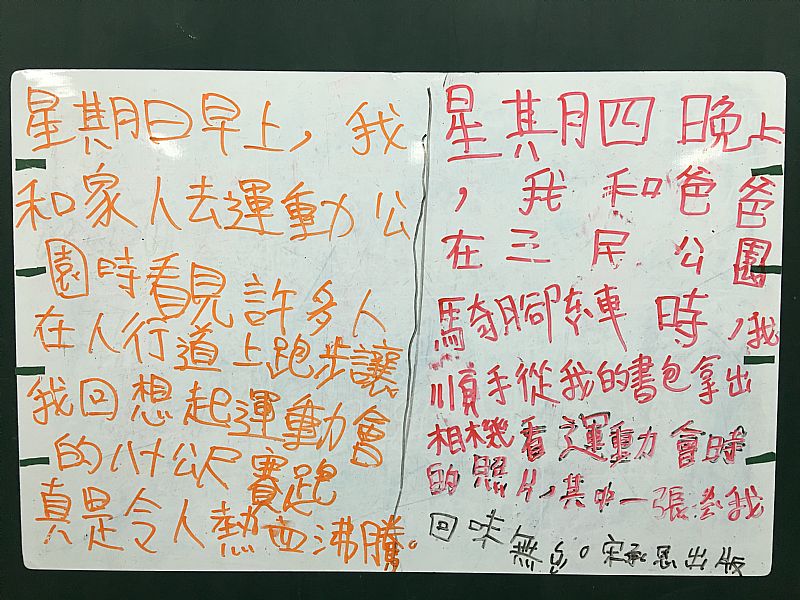 星期日早上，我
和家人去運動公
園時看見許多人
在人行道上跑步讓
我回想起運動會
的八十公尺賽跑
真是令人熱血沸騰。
星其月四晚上
，我和爸爸
在三民公園
騎腳車時，我
順手從我的書包拿出
相機看運動會時
的照片，其中一張令我
回味無窮。宋承恩出版